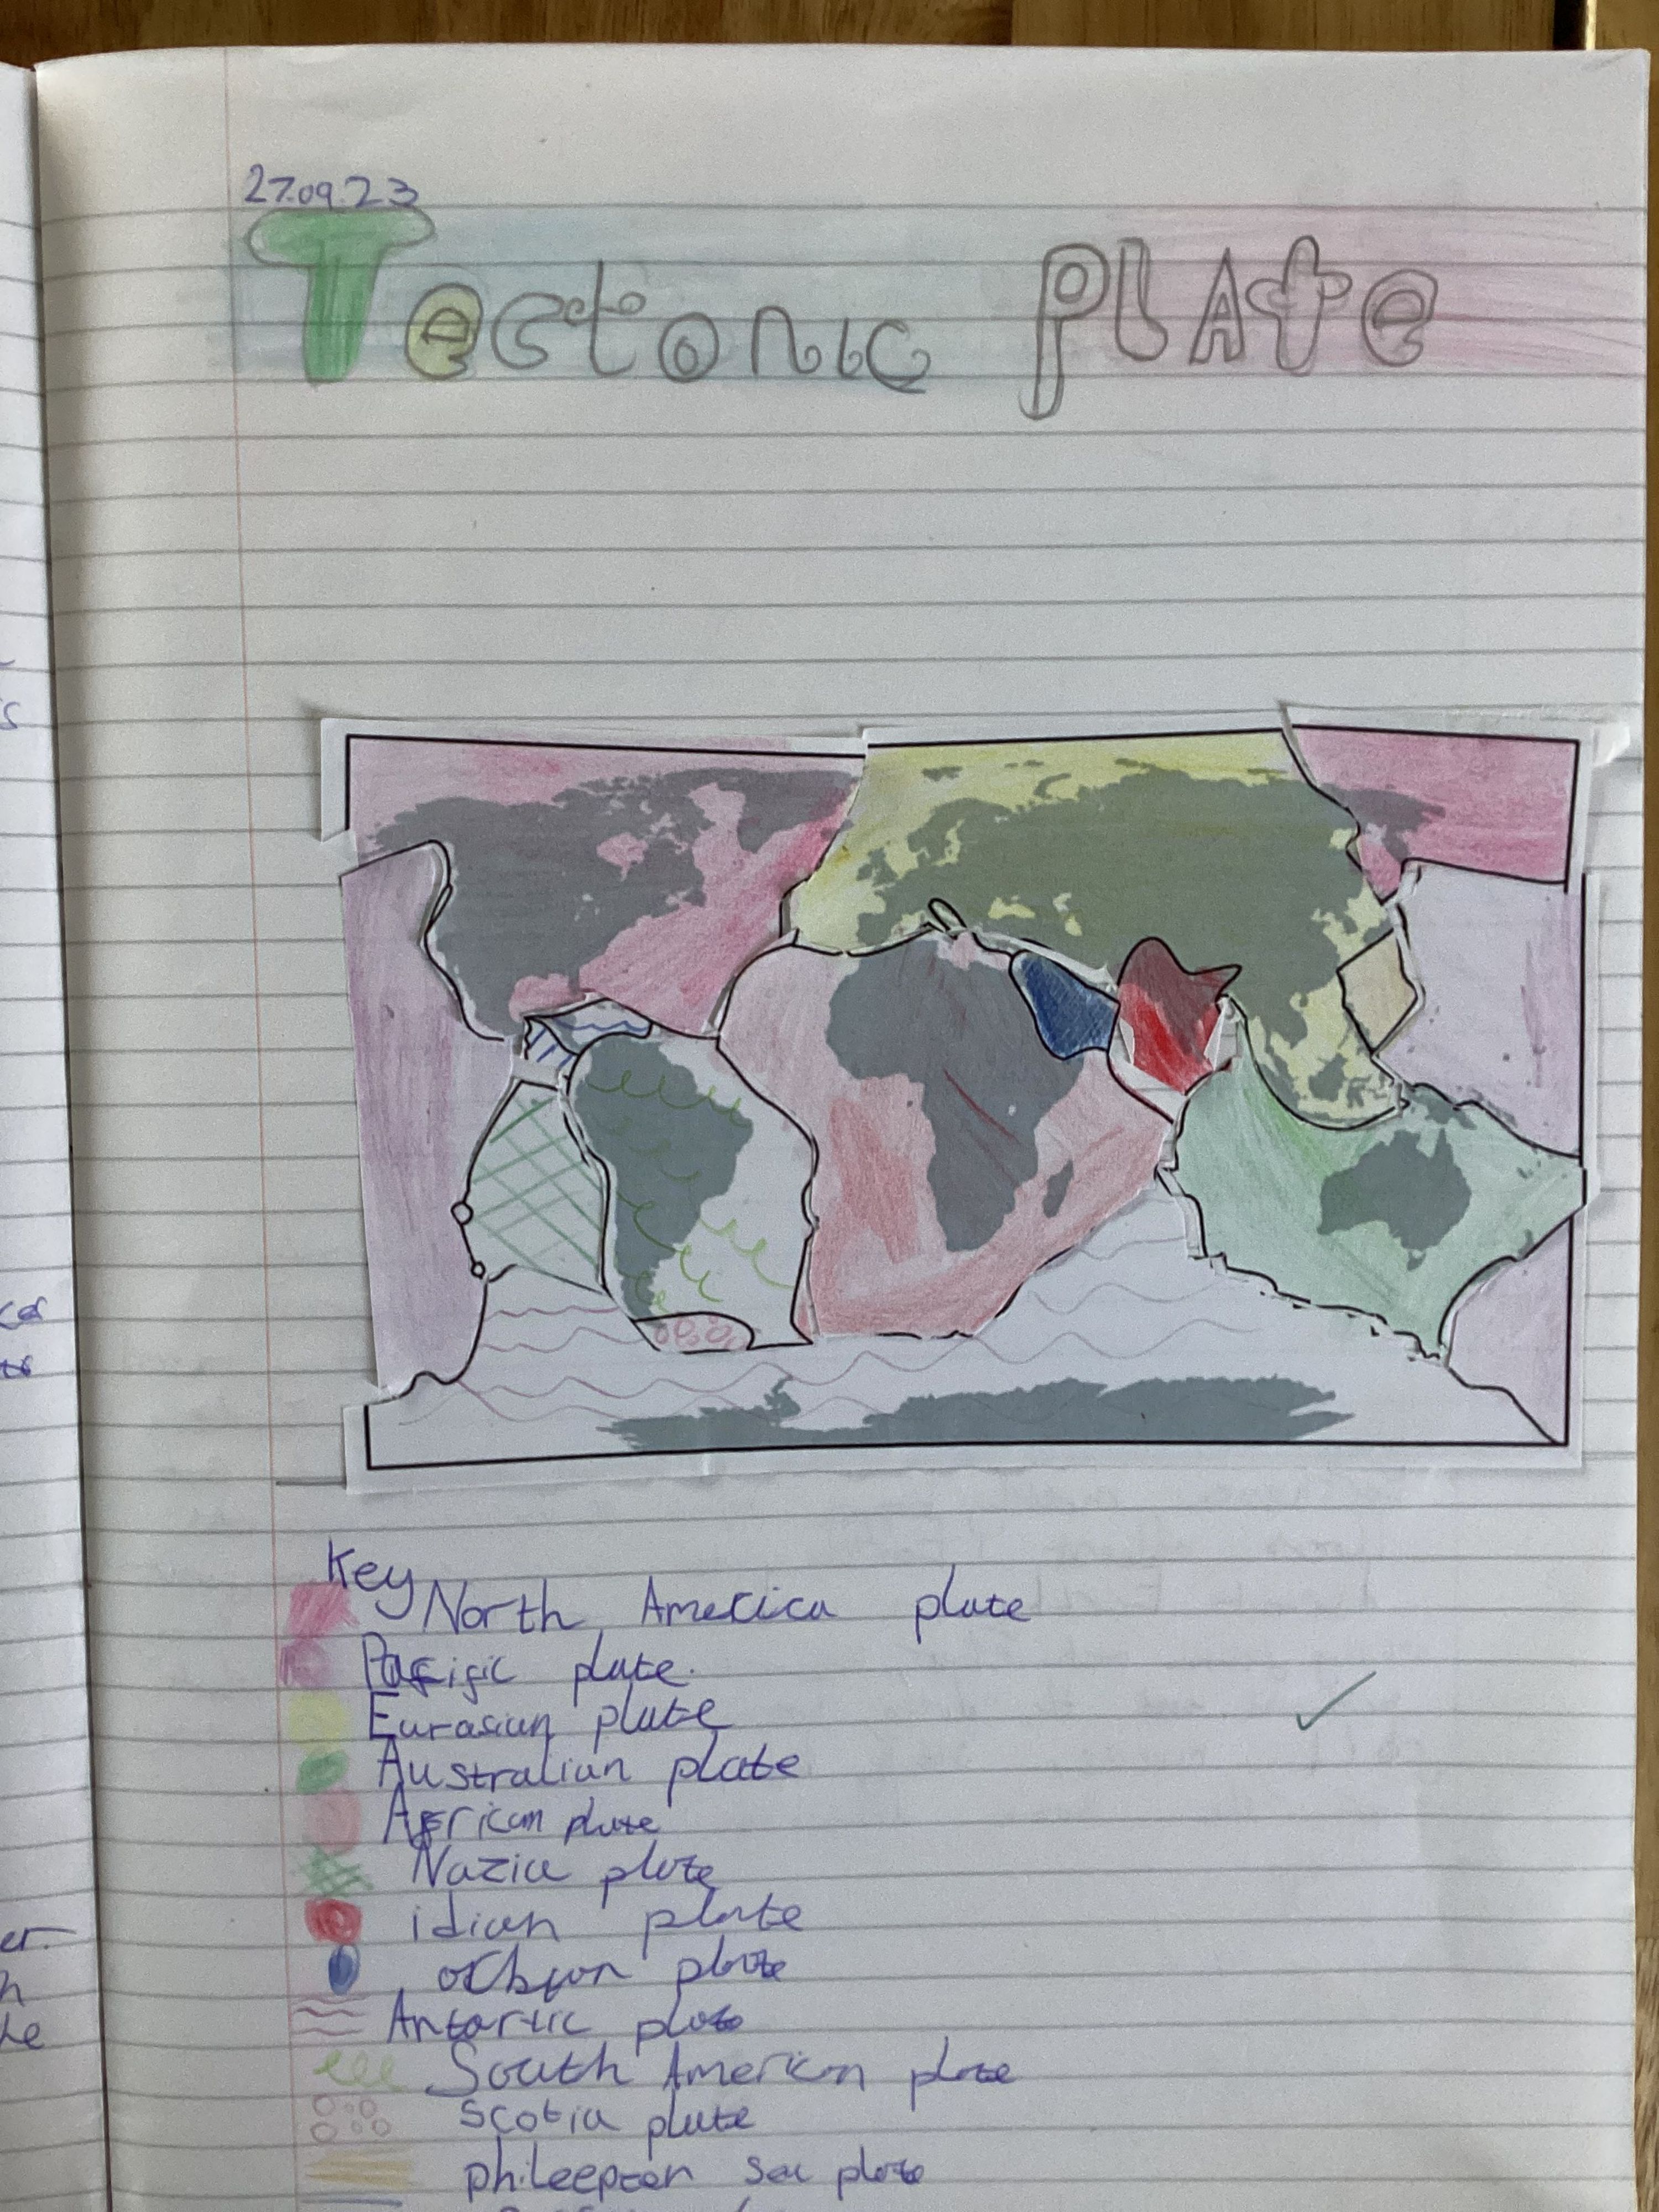 27.09.23
Tectonic PLAte
Key
North America plate
Pacific plate.
Eurasian plate
Australian plate
African plate
Nazia plate
idian plate
plate
Antartic plate
South American plate
Scotia plate
phileepten sea plate
s
er.
n